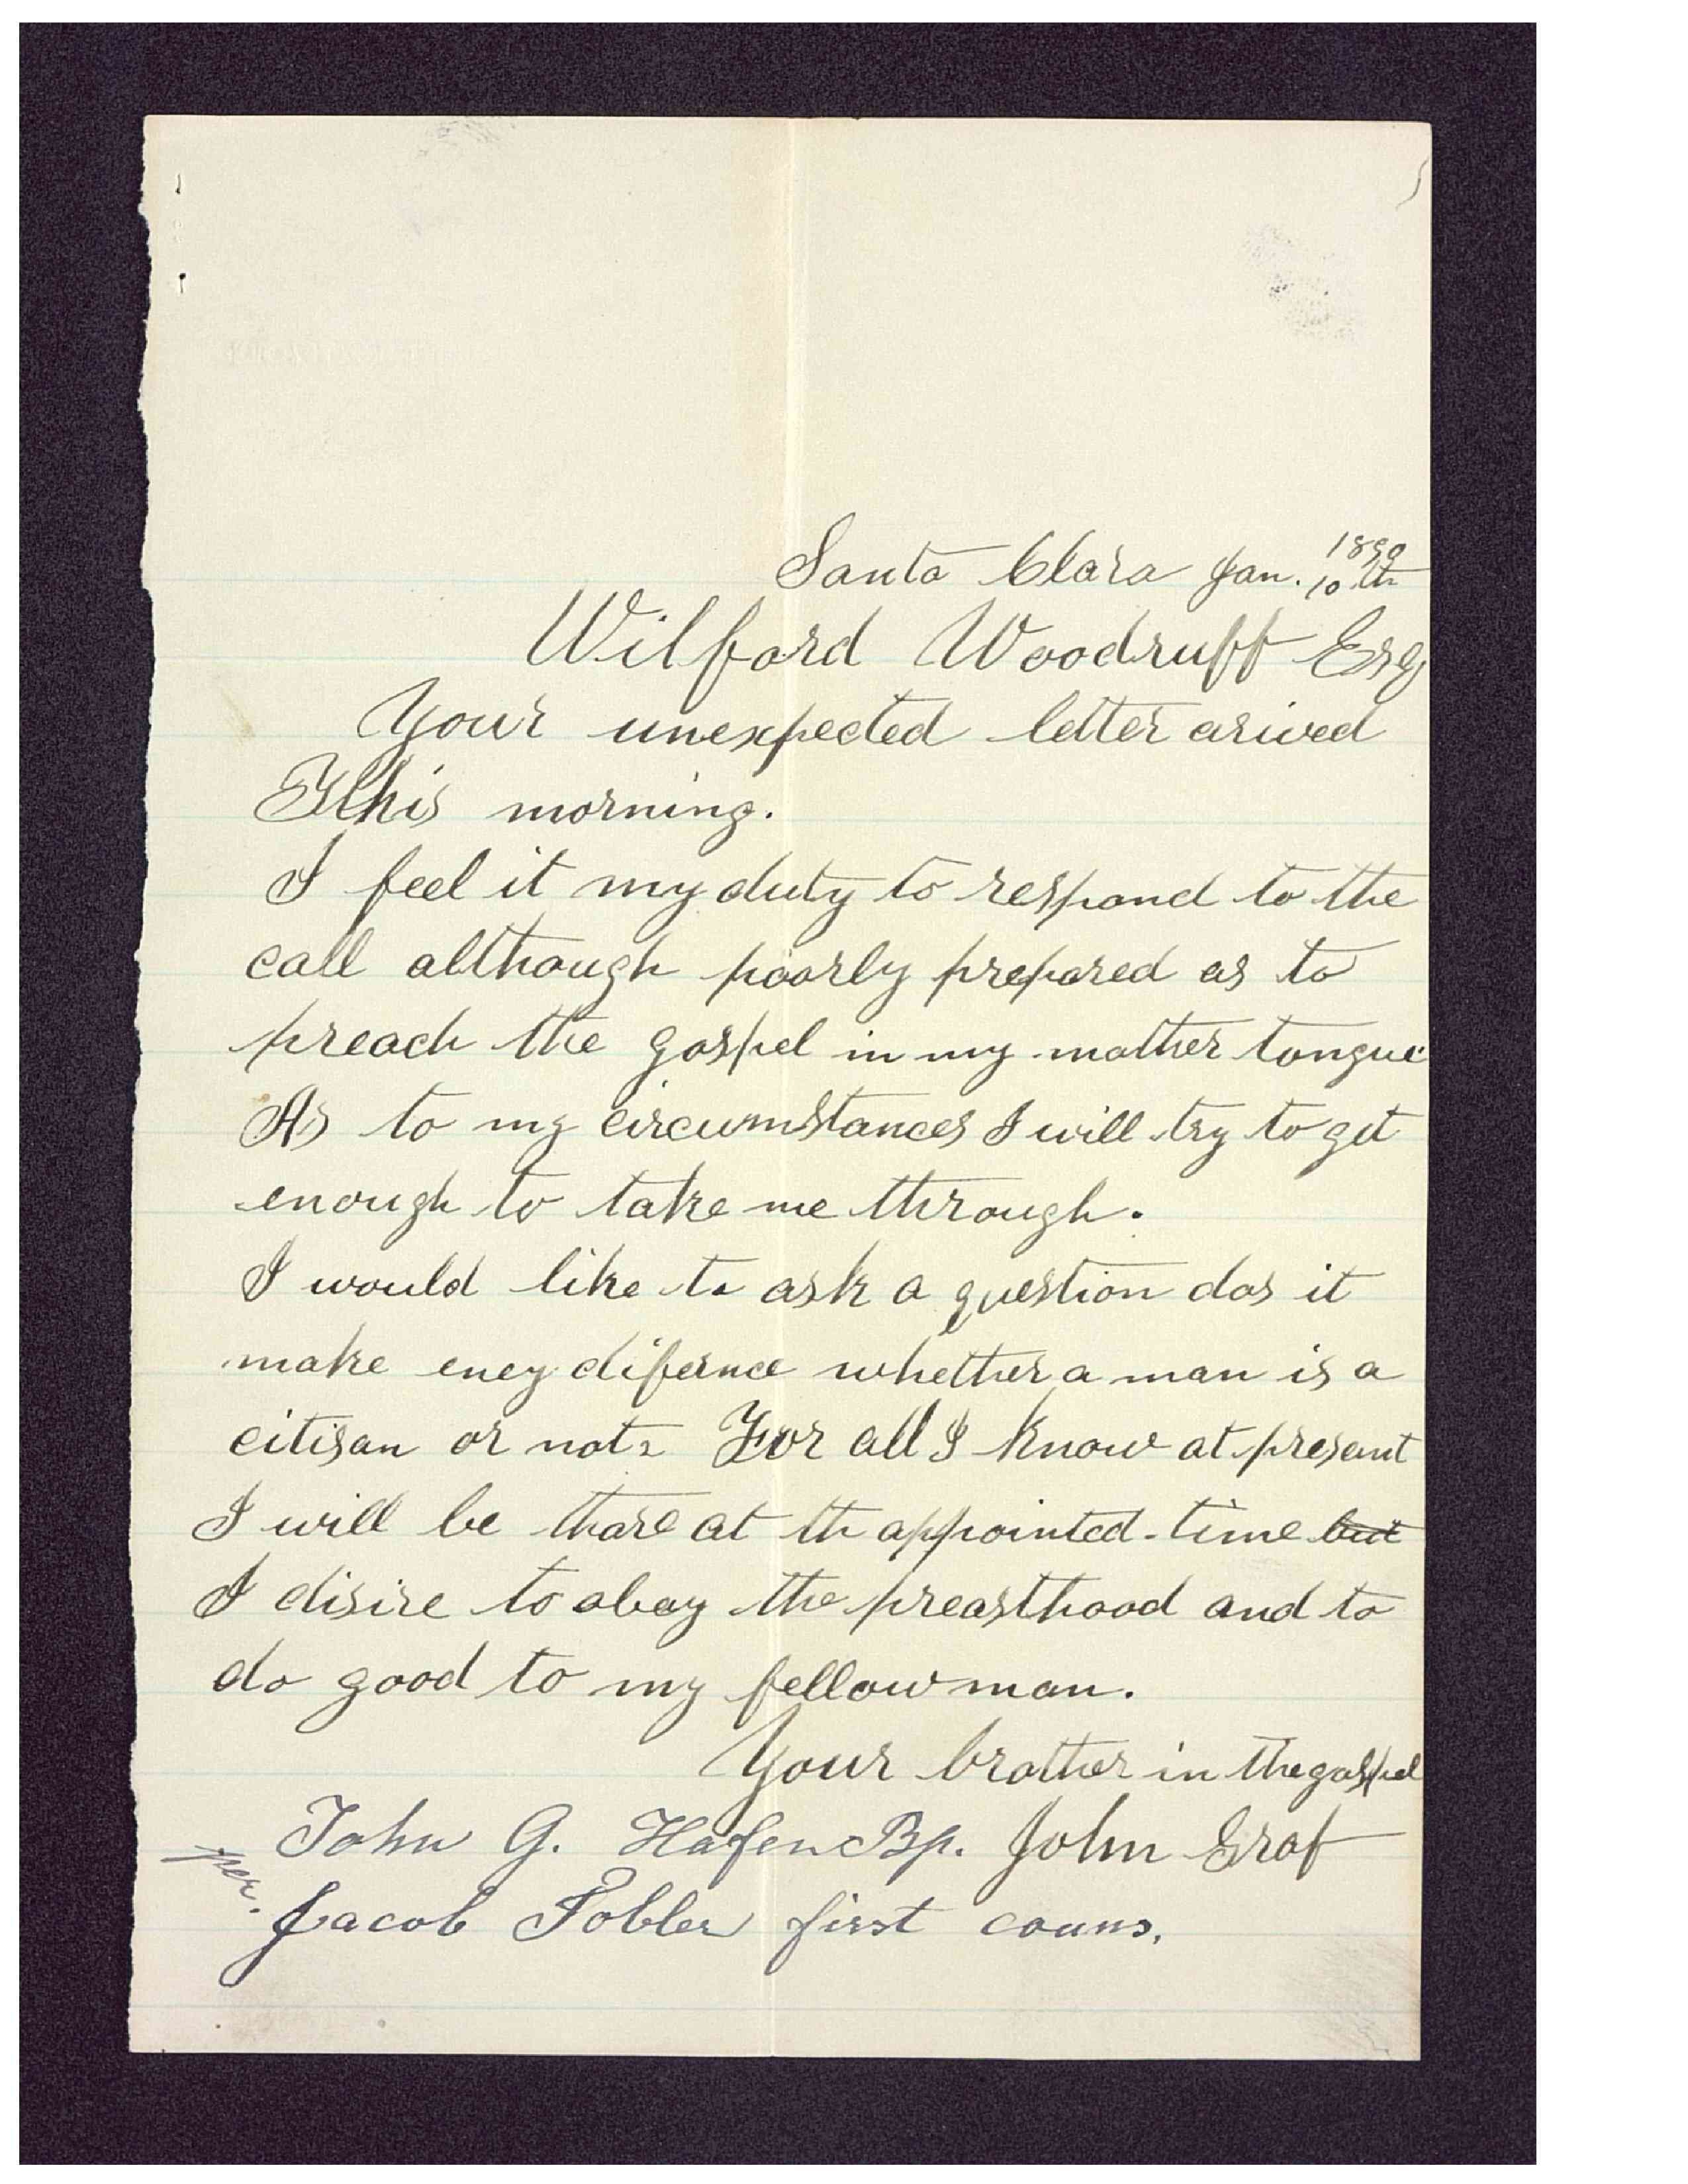 Santa Clara Jan. 10th 1890
Wilford Woodruff Esq
Your unexpected letter arived
This morning.
I feel it my duty to respond to the
call although poorly prepared as to
preach the gospel in my mother tongue
As to my circumstances I will try to get
enough to take me through.
I would like to ask a question dos it
make eney difernce whether a man is a
citisan or not. For all I know at presant
I will be thare at th appointed time but
I disire to obay the preasthood and to
do good to my fellow man.
Your brother in the gospel
John G. Hafen Bp. John Graf
per.
Jacob Tobler first couns.